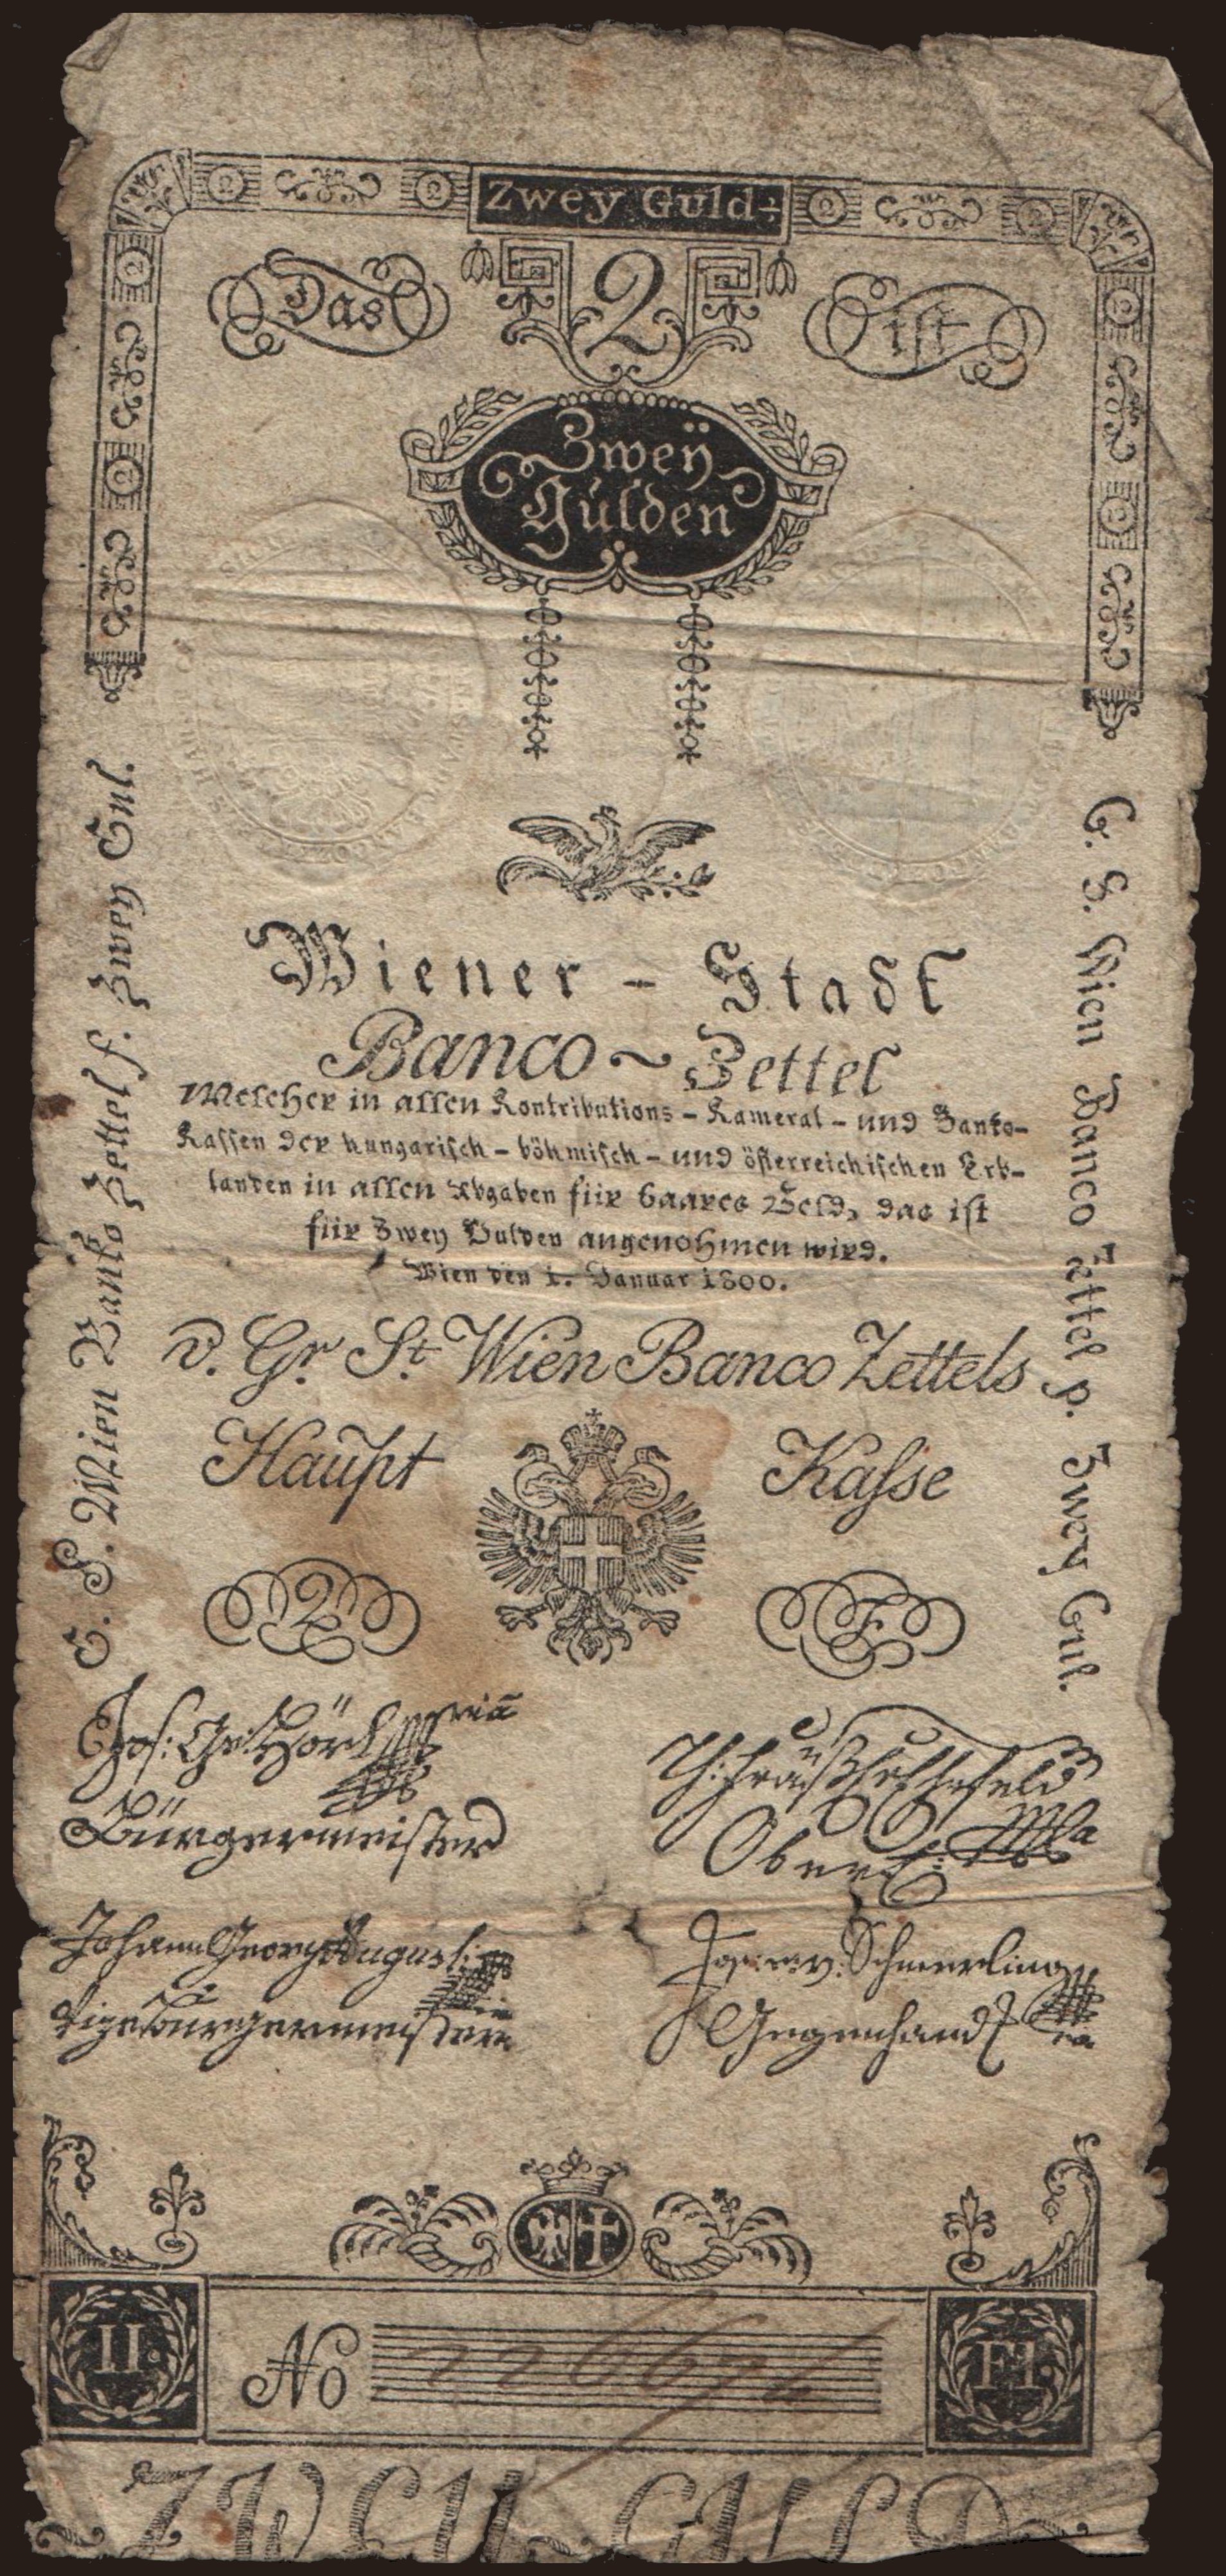 Zwey Guld÷
Das 2 ist
Zweÿ
Gulden
Wiener - Stadt
Banco ~ Zettel
Welcher in allen Kontributions - Kameral - und Banko-
Kassen der hungarisch - böhmisch - und österreichischen Erb-
landen in allen Abgaben für baares Geld, das ist
für Zwey Gulden angenohmen wird.
Wien den 1. Januar 1800.
v. Gr. St. Wien Banco Zettels
Haupt Kasse
2 F
G. S. Wien Banko Zettel f. Zwey Gul.
G. S. Wien Banco Zettel p. Zwey Gul.
Jos: Hörl
Bürgermeister
Johann Georg Augusti
Vizebürgermeister
v: Schmerling
Gegenhand
II. No Fl.
ZWEY GULD